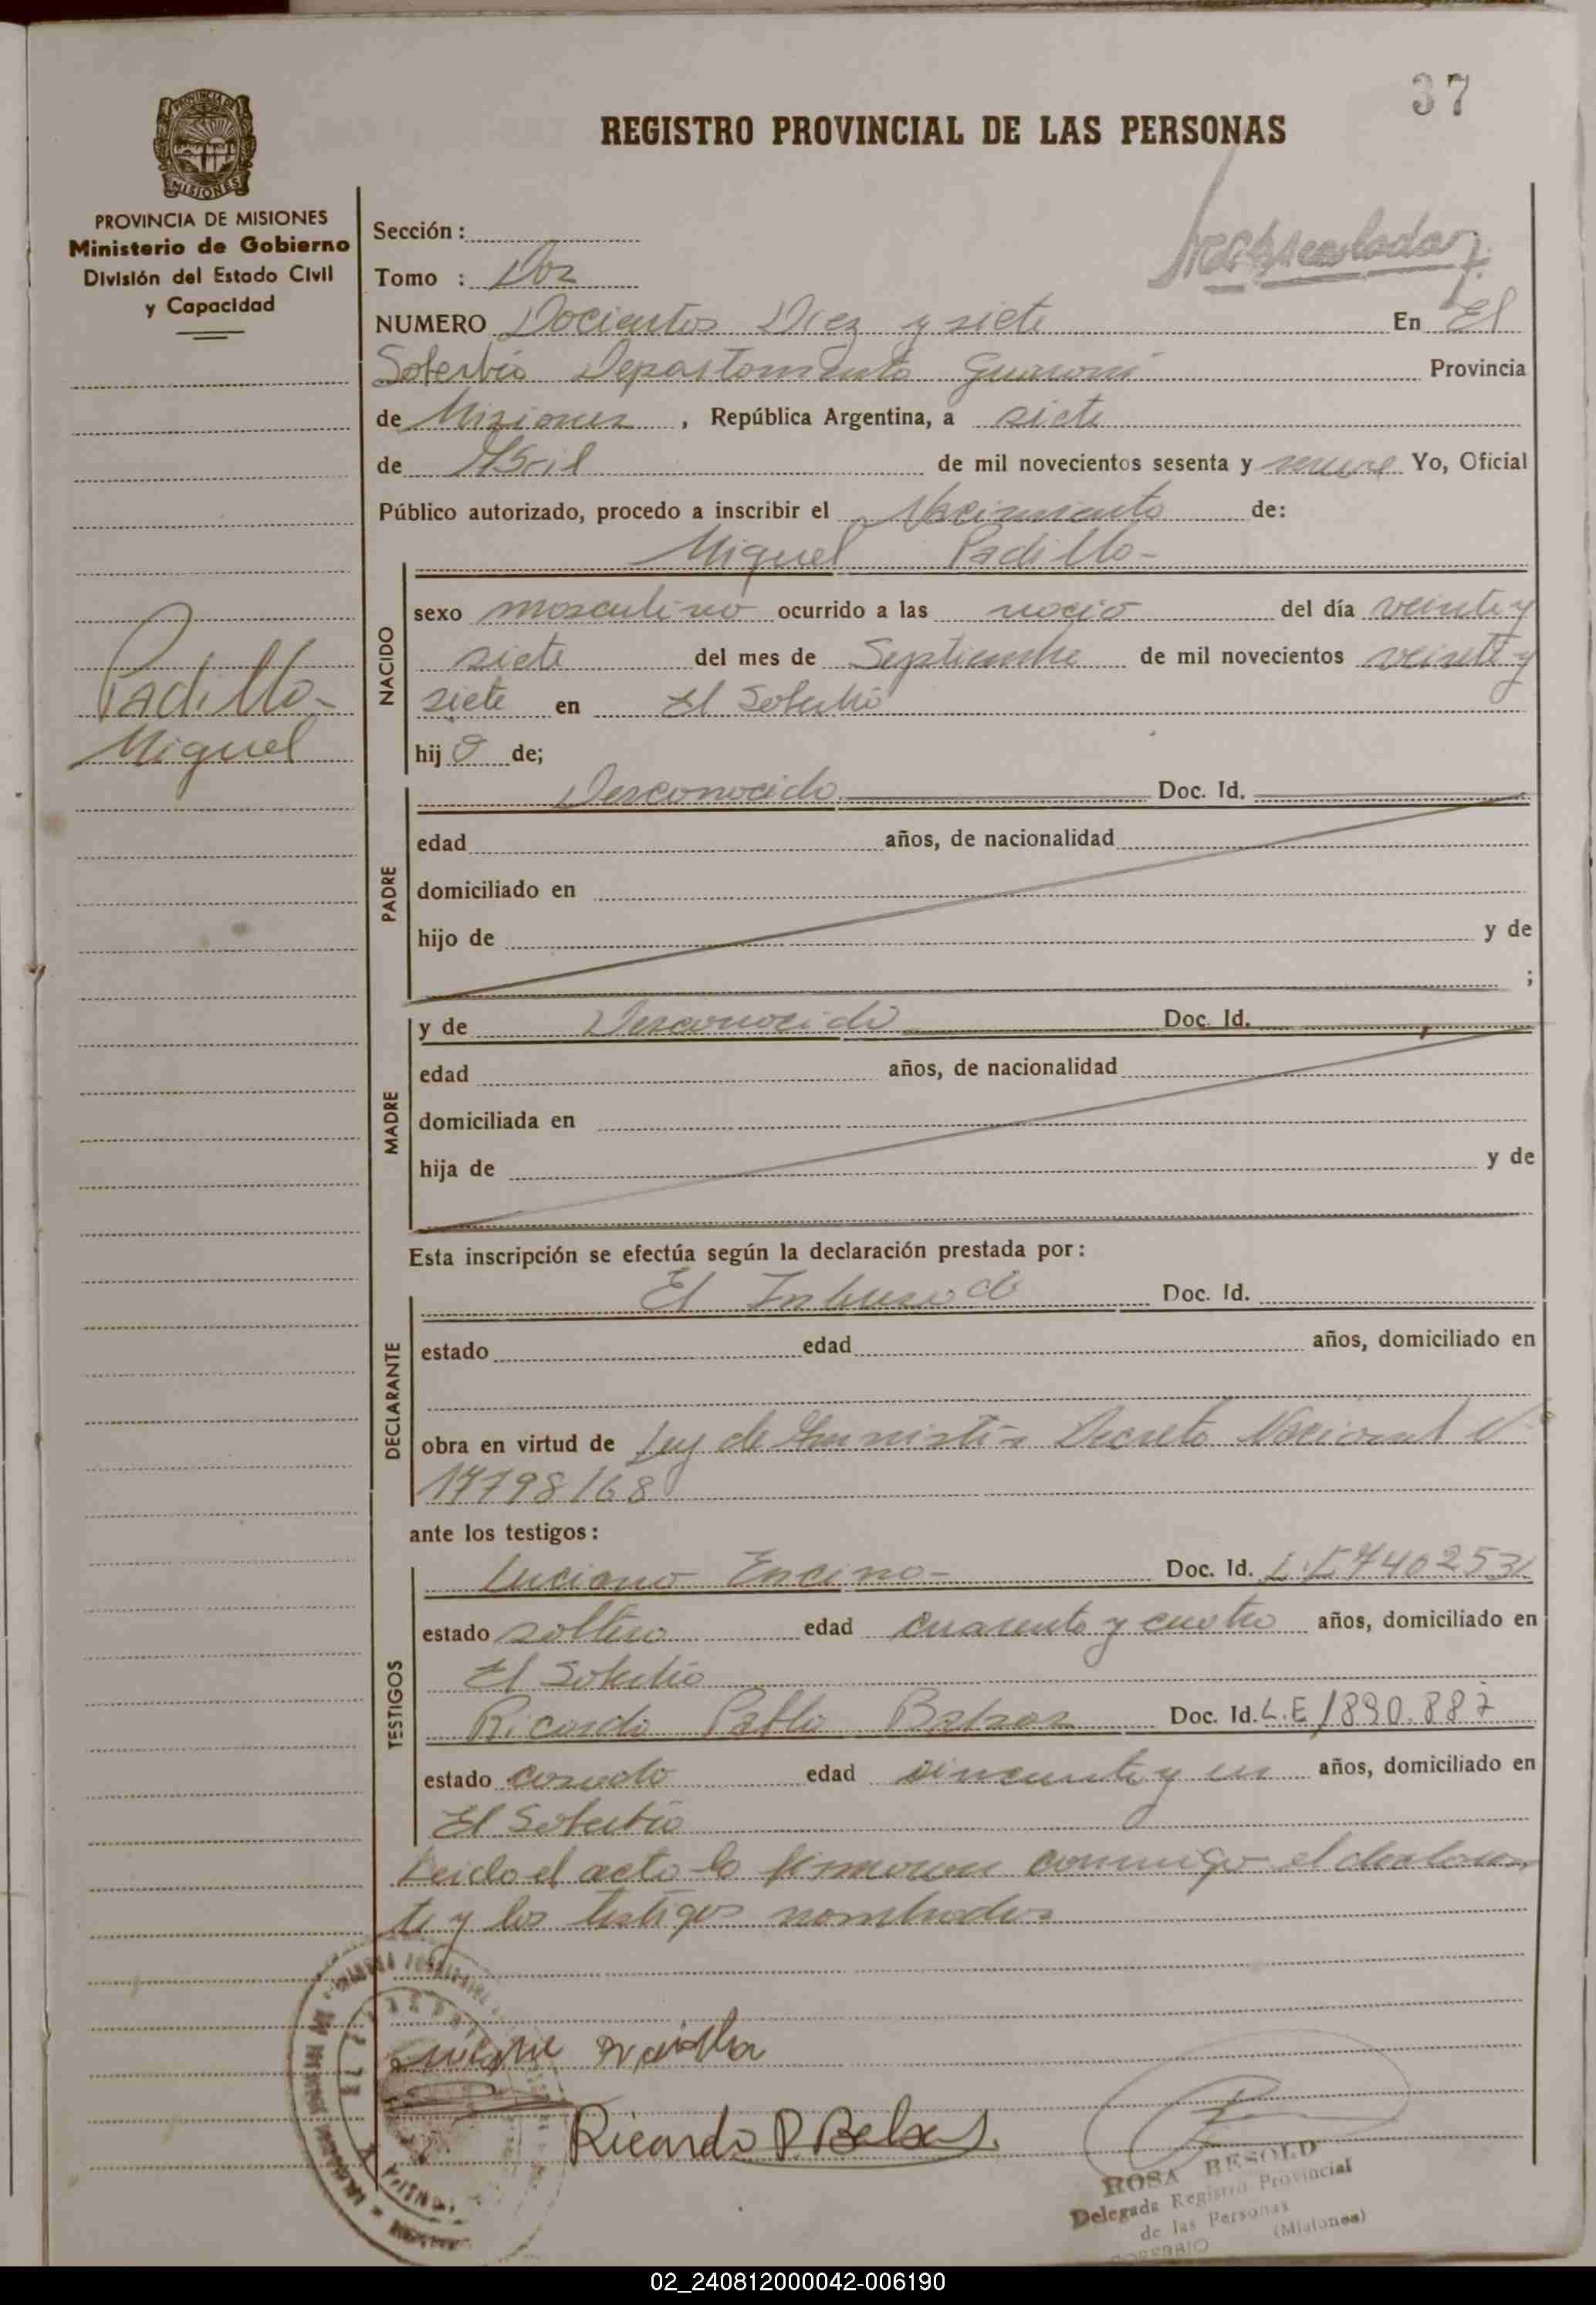 37
REGISTRO PROVINCIAL DE LAS PERSONAS
PROVINCIA DE
MISIONES
PROVINCIA DE MISIONES
Ministerio de Gobierno
División del Estado Civil
y Capacidad
Sección :
Tomo : Dos
NUMERO Docientos Diez y siete En El
Soberbio Departamento Guarani Provincia
de Misiones , República Argentina, a siete
de Abril de mil novecientos sesenta y nueve Yo, Oficial
Público autorizado, procedo a inscribir el Nacimiento de:
Miguel Padilla-
NACIDO
sexo masculino ocurrido a las nació del día veinte y
siete del mes de Septiembre de mil novecientos veinte y
siete en El Soberbio
hij o de;
Padilla-
Miguel
PADRE
Desconocido Doc. Id.
edad años, de nacionalidad
domiciliado en
hijo de y de
;
MADRE
y de Desconocido Doc. Id.
edad años, de nacionalidad
domiciliada en
hija de y de
Esta inscripción se efectúa según la declaración prestada por:
DECLARANTE
El Doc. Id.
estado edad años, domiciliado en
obra en virtud de Ley de Decreto Nacional Nº
17798/68
ante los testigos:
TESTIGOS
Luciano Encina- Doc. Id. L.E 7402531
estado soltero edad cuarenta y cuatro años, domiciliado en
El Soberbio
Ricardo Pablo Doc. Id. L.E 1890.887
estado casado edad cincuenta y un años, domiciliado en
El Soberbio
Leido el acta lo firmaron conmigo el declaran
te y los testigos nombrados
Ricardo P.
ROSA BESOLD
Delegada Registro Provincial
de las Personas
SOBERBIO (Misiones)
02_240812000042-006190